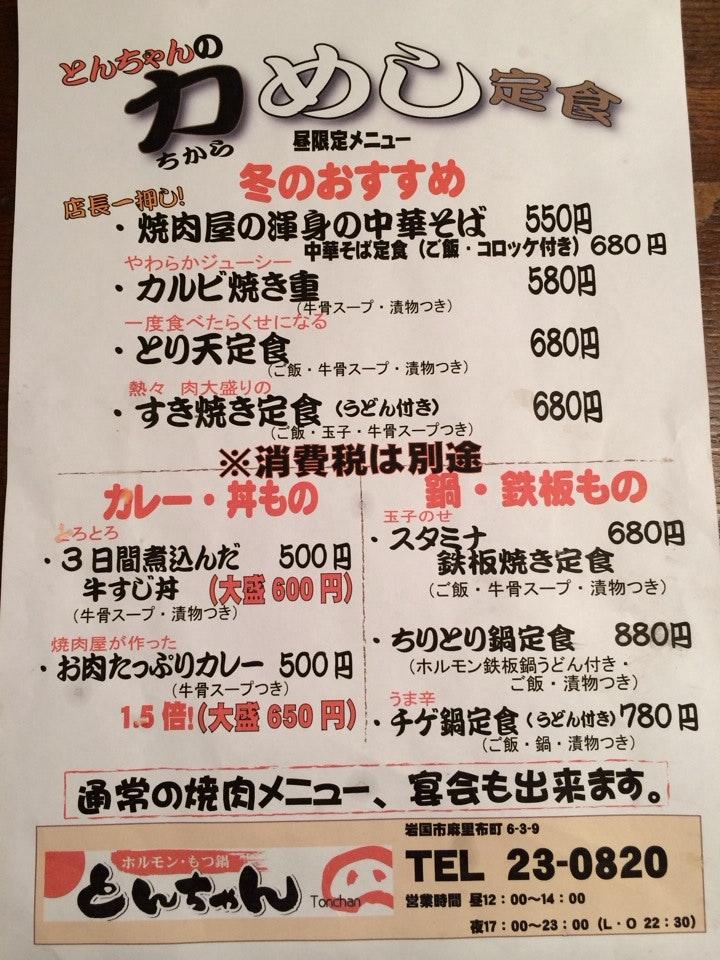 とんちゃんの
力めし定食
ちから
昼限定メニュー
冬のおすすめ
店長一押し!
・焼肉屋の渾身の中華そば 550円
中華そば定食(ご飯・コロッケ付き) 680円
やわらかジューシー
・カルビ焼き重 580円
(牛骨スープ・漬物つき)
一度食べたらくせになる
・とり天定食 680円
(ご飯・牛骨スープ・漬物つき)
熱々 肉大盛りの
・すき焼き定食(うどん付き) 680円
(ご飯・玉子・牛骨スープつき)
※消費税は別途
カレー・丼もの
とろとろ
・3日間煮込んだ 500円
牛すじ丼 (大盛600円)
(牛骨スープ・漬物つき)
焼肉屋が作った
・お肉たっぷりカレー 500円
(牛骨スープつき)
1.5倍!(大盛650円)
鍋・鉄板もの
玉子のせ
・スタミナ 680円
鉄板焼き定食
(ご飯・牛骨スープ・漬物つき)
・ちりとり鍋定食 880円
(ホルモン鉄板鍋うどん付き・
ご飯・漬物つき)
うま辛
・チゲ鍋定食(うどん付き)780円
(ご飯・鍋・漬物つき)
通常の焼肉メニュー、宴会も出来ます。
ホルモン・もつ鍋
とんちゃん Tonchan
岩国市麻里布町6-3-9
TEL 23-0820
営業時間 昼12:00〜14:00
夜17:00〜23:00(L・O 22:30)